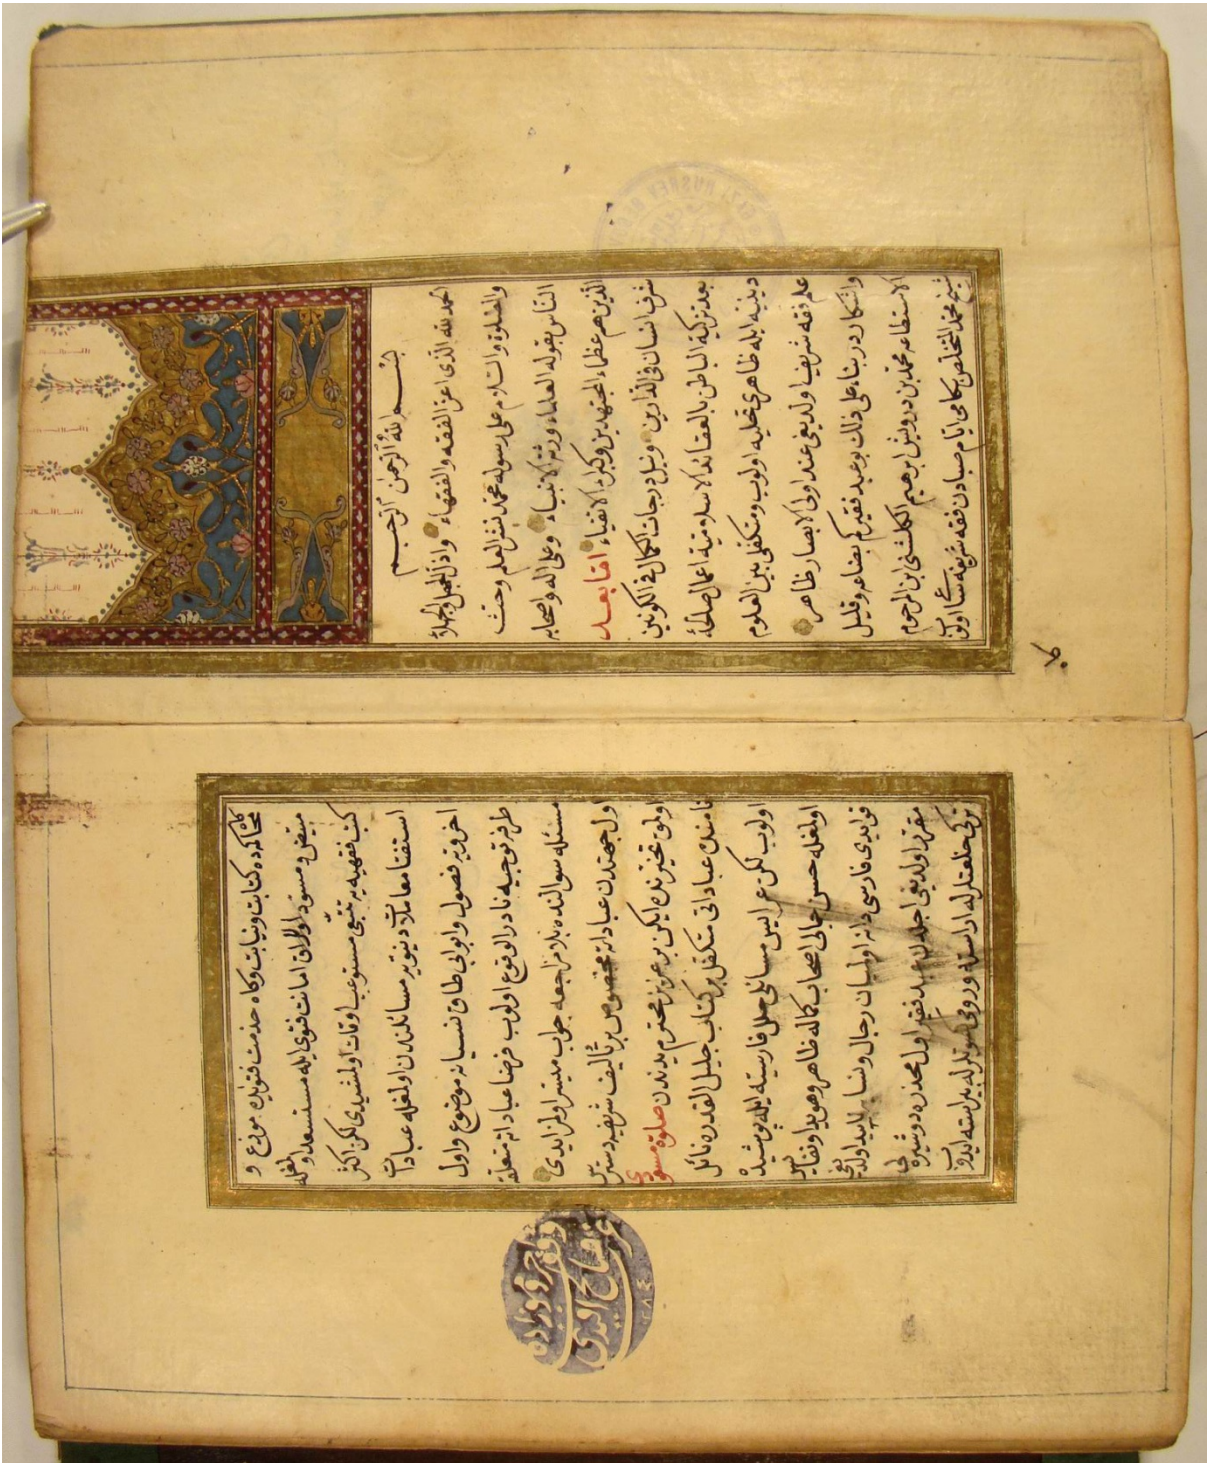 بسم الله الرحمن الرحيم
الحمد لله الذى اعز الفقه والفقهاء واذل الجهل والجهلا
والصلوة والسلام على رسوله محمد نشر العلم وحث
الناس بقوله العلماء ورثة الانبياء وعلى اله واصحابه
الذين هم عظماء المجتهدين وكبراء الاتقياء اما بعد
شرف انسان فى الدارين ونيل درجات الكمال فى الكونين
بعد تزكية الباطن بالعقائد الاسلامية اعمال صالحهٔ
دينيه ايله ظاهرى تحليه اولوب ومتكفلى بين العلوم
علم فقه شريف اولديغى عند اولى الابصار ظاهر
واشكاردر بناء على ذلك بو عبد فقير كم بضاعه وقليل
الاستطاعه محمد بن درويش ابرهيم الكلشنى ابن المرحوم
شيخ محمد المتخلص بكامى ايام صبادن فقه شريفه ساعى اولوب
محاكمده كتابت ونيابت وكاه خدمت فتويده موزع و
مبيض ومسود اوراق امانت فتوى ايله مستسعد اولمغله
كتب فقهيه يه تتبعى مستوعب اوقات اولمشيدى لكن اكثر
استفتا معاملات دنيويه مسائلندن اولمغله عبادات
اخرويه فصول وابوابى طاق نسيانه موضوع واول
طرفه توجيه نادر الوقوع اولوب فرضا عباداته متعلقه
مسئله سوالنده بلا مراجعه جواب ميسر اولمز ايدى
اول جهتدن عباداته مخصوص بر تأليف شريفه دسترس
اولمق تحيرنده ايكن بر عزيز محترم يدندن صلوة مسعودى
نامنده عباداتى متكفل بر كتاب جليل القدره نائل
اولوب لكن عرايس مسائلى حلل فارسيه ايله پوشيده
اولمغله حسن جمالى اصحاب كماله ظاهر وهويدا ونفايس
فوايدى فارسى دانه اولميان رجال ونسايه ناپيدا اولديغى
مقرر اولديغى اجلدن عبد فقير اول مخدره دوشيزه يى
تركى خلعتلرله اراسته ورومى كسوتلرله پيراسته ايدوب